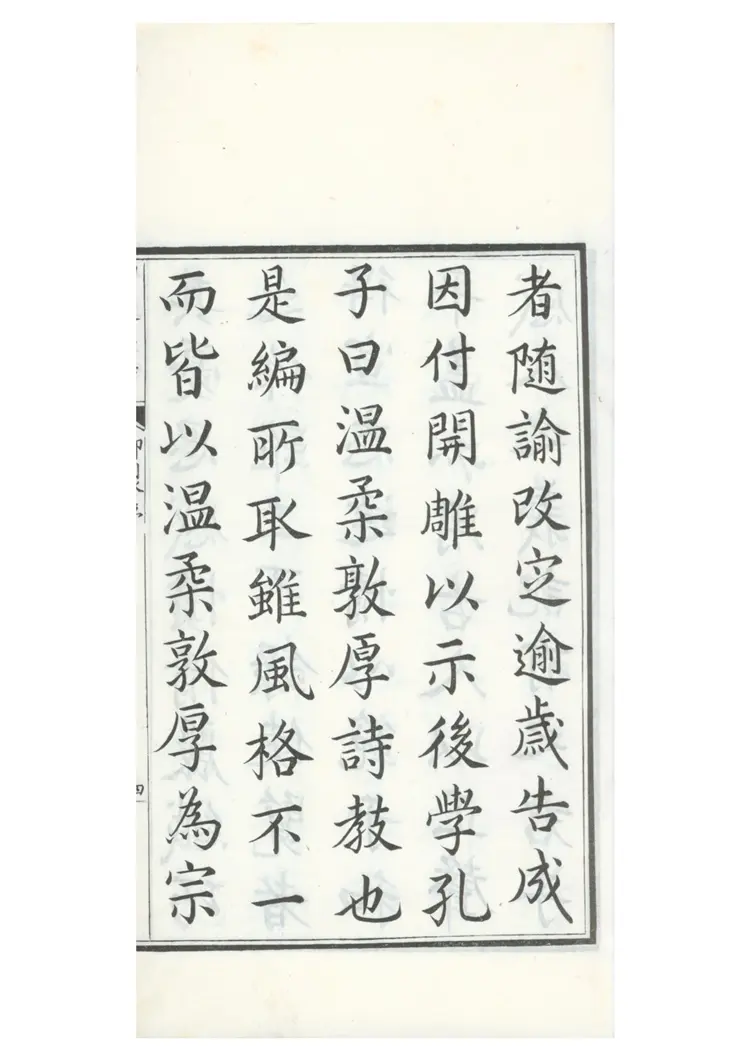 者随諭改定逾歲告成
因付開雕以示後學孔
子曰温柔敦厚詩教也
是編所取雖風格不一
而皆以温柔敦厚為宗
四